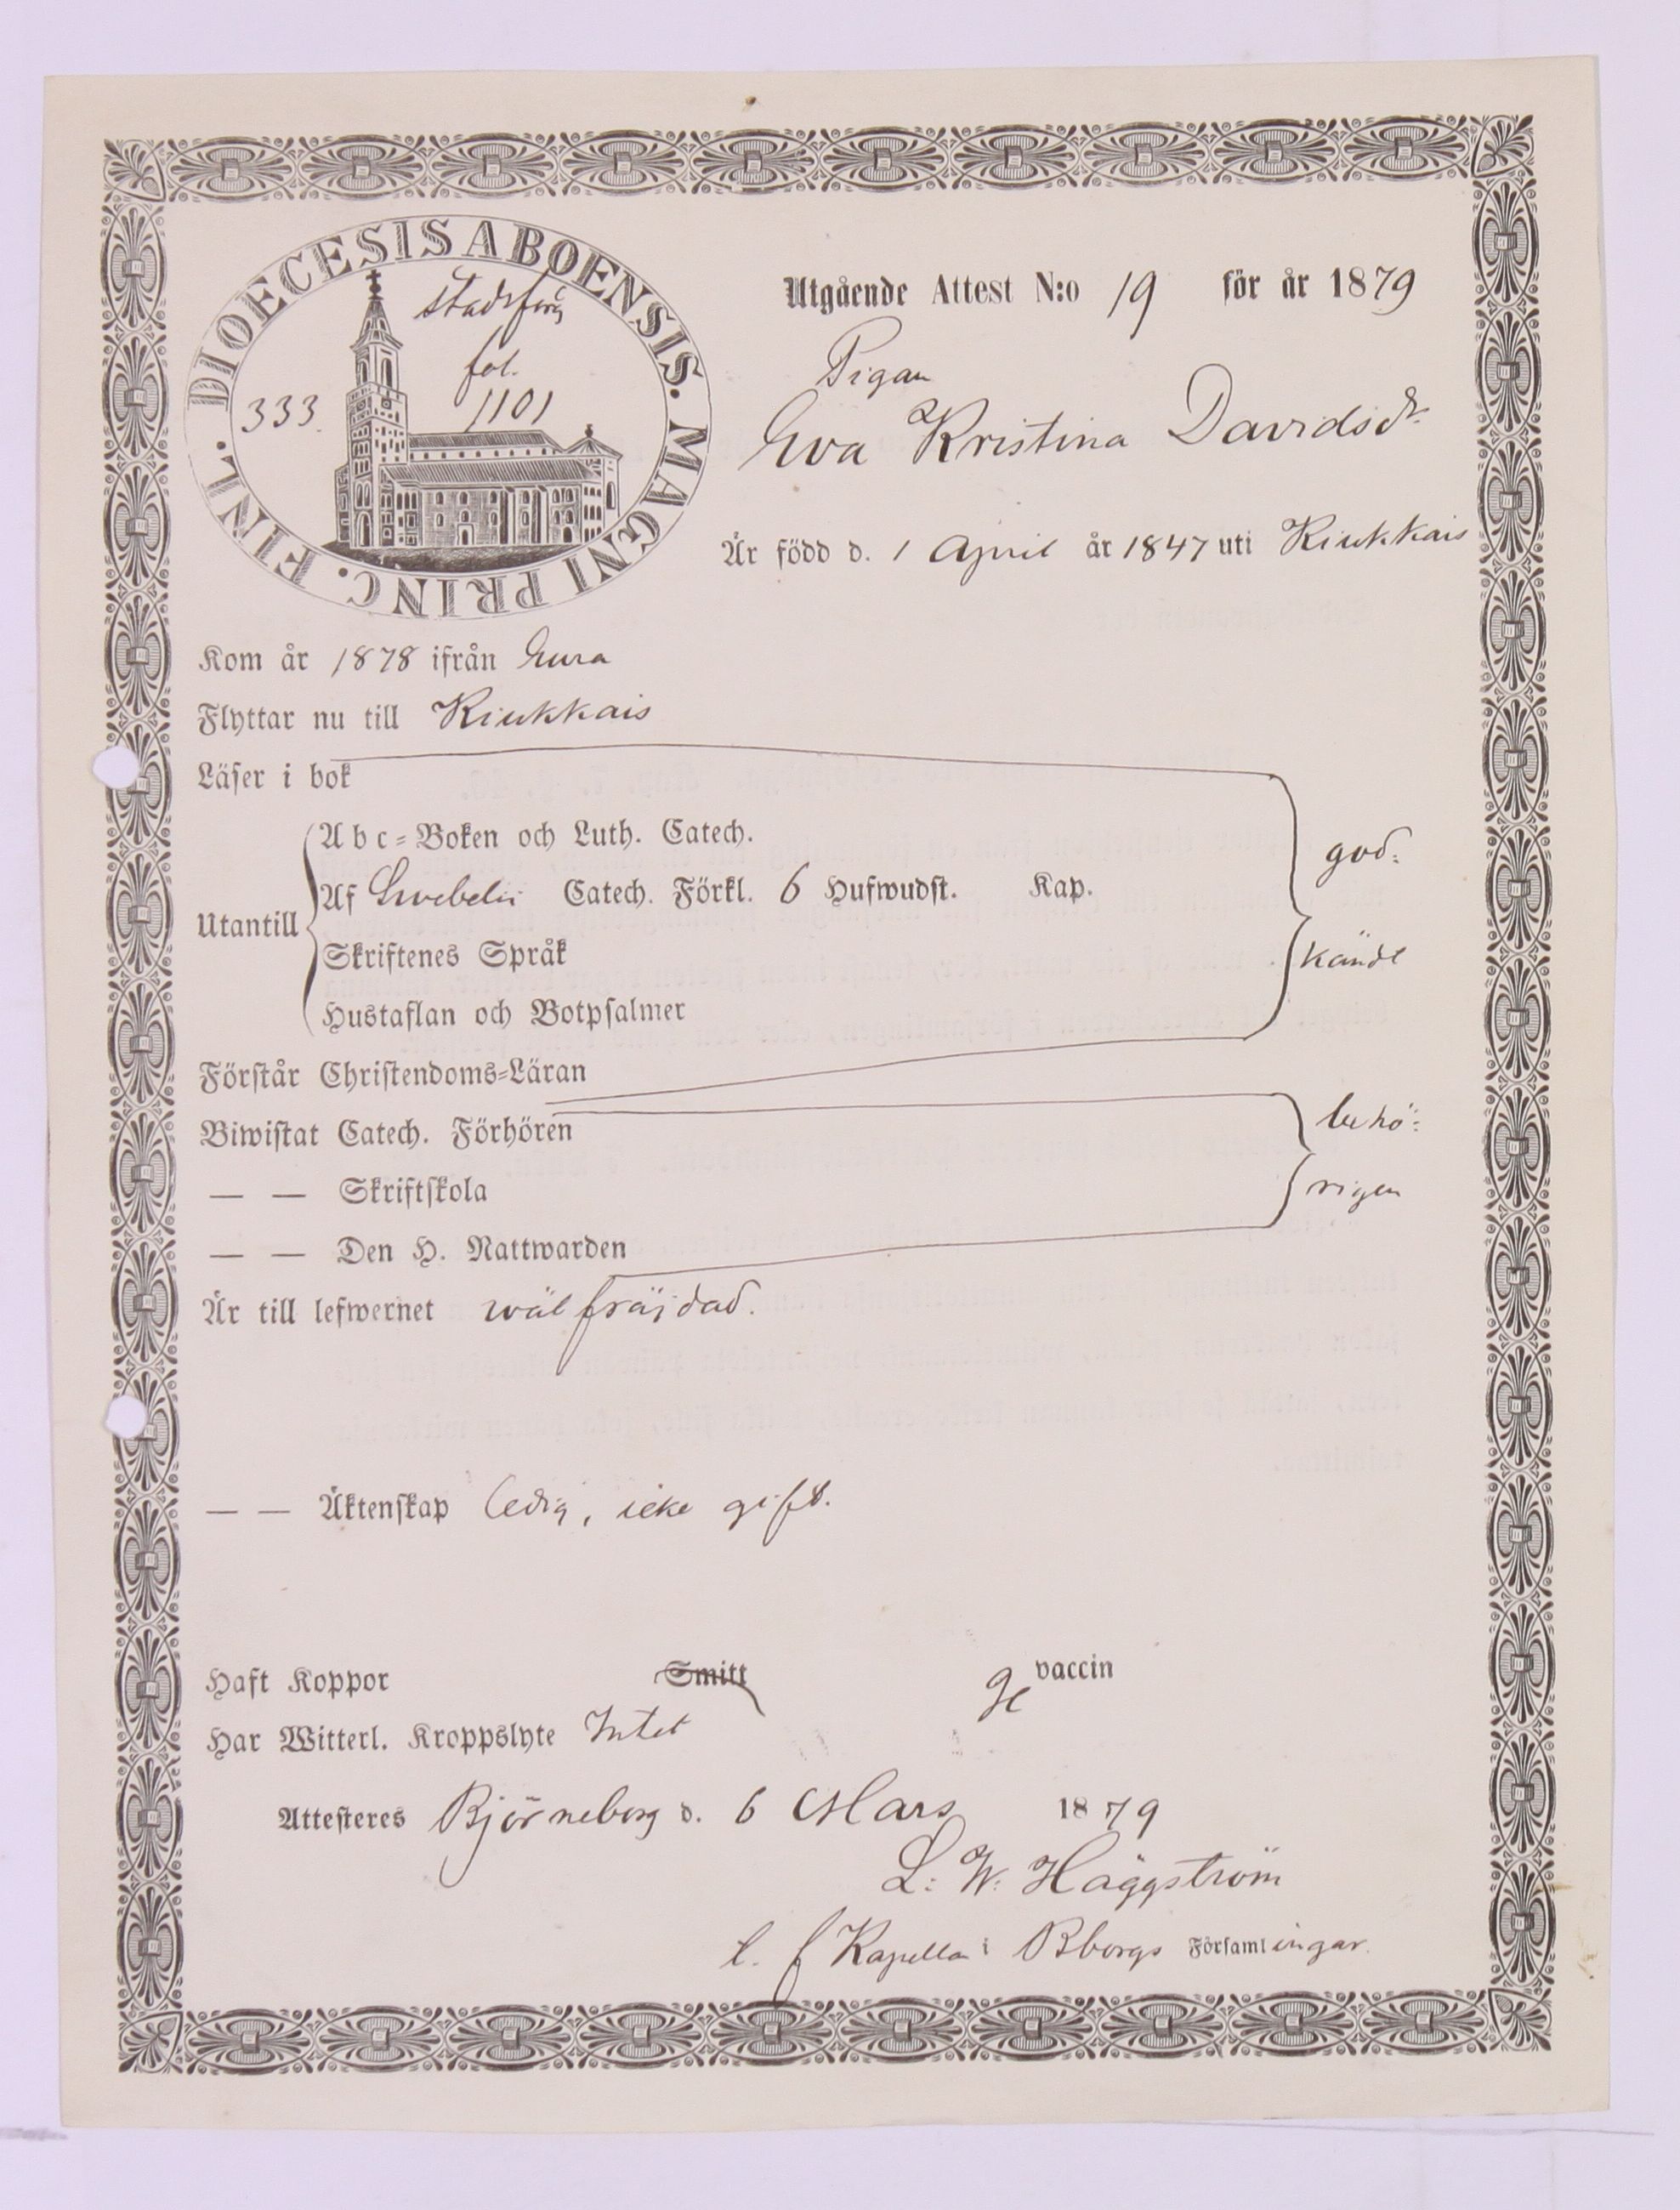 DIOECESIS ABOENSIS. MAGNI PRINC. FINL.
stadsförs
fol.
333. 1101
Utgående Attest N:o 19 för år 1879
Pigan
Eva Kristina Davidsdr
Är född d. 1 April år 1847 uti Kiukkais
Kom år 1878 ifrån Eura
Flyttar nu till Kiukkais
Läser i bok
Abc-Boken och Luth. Catech.
god:
Af Swebelii Catech. Förkl. 6 Hufwudst. Kap.
Utantill
Skriftenes Språk
kände
Hustaflan och Botpsalmer
Förstår Christendoms-Läran
Biwistat Catech. Förhören
behö:
— — Skriftskola
rigen
— — Den H. Nattwarden
Är till lefwernet wälfräjdad.
— — Äktenskap ledig, icke gift.
Haft Koppor Smitt vaccin
Har Witterl. Kroppslyte Intet
Attesteres Björneborg d. 6 Mars 1879
L. W. Häggström
t. f Kapellan i Bborgs Församlingar.